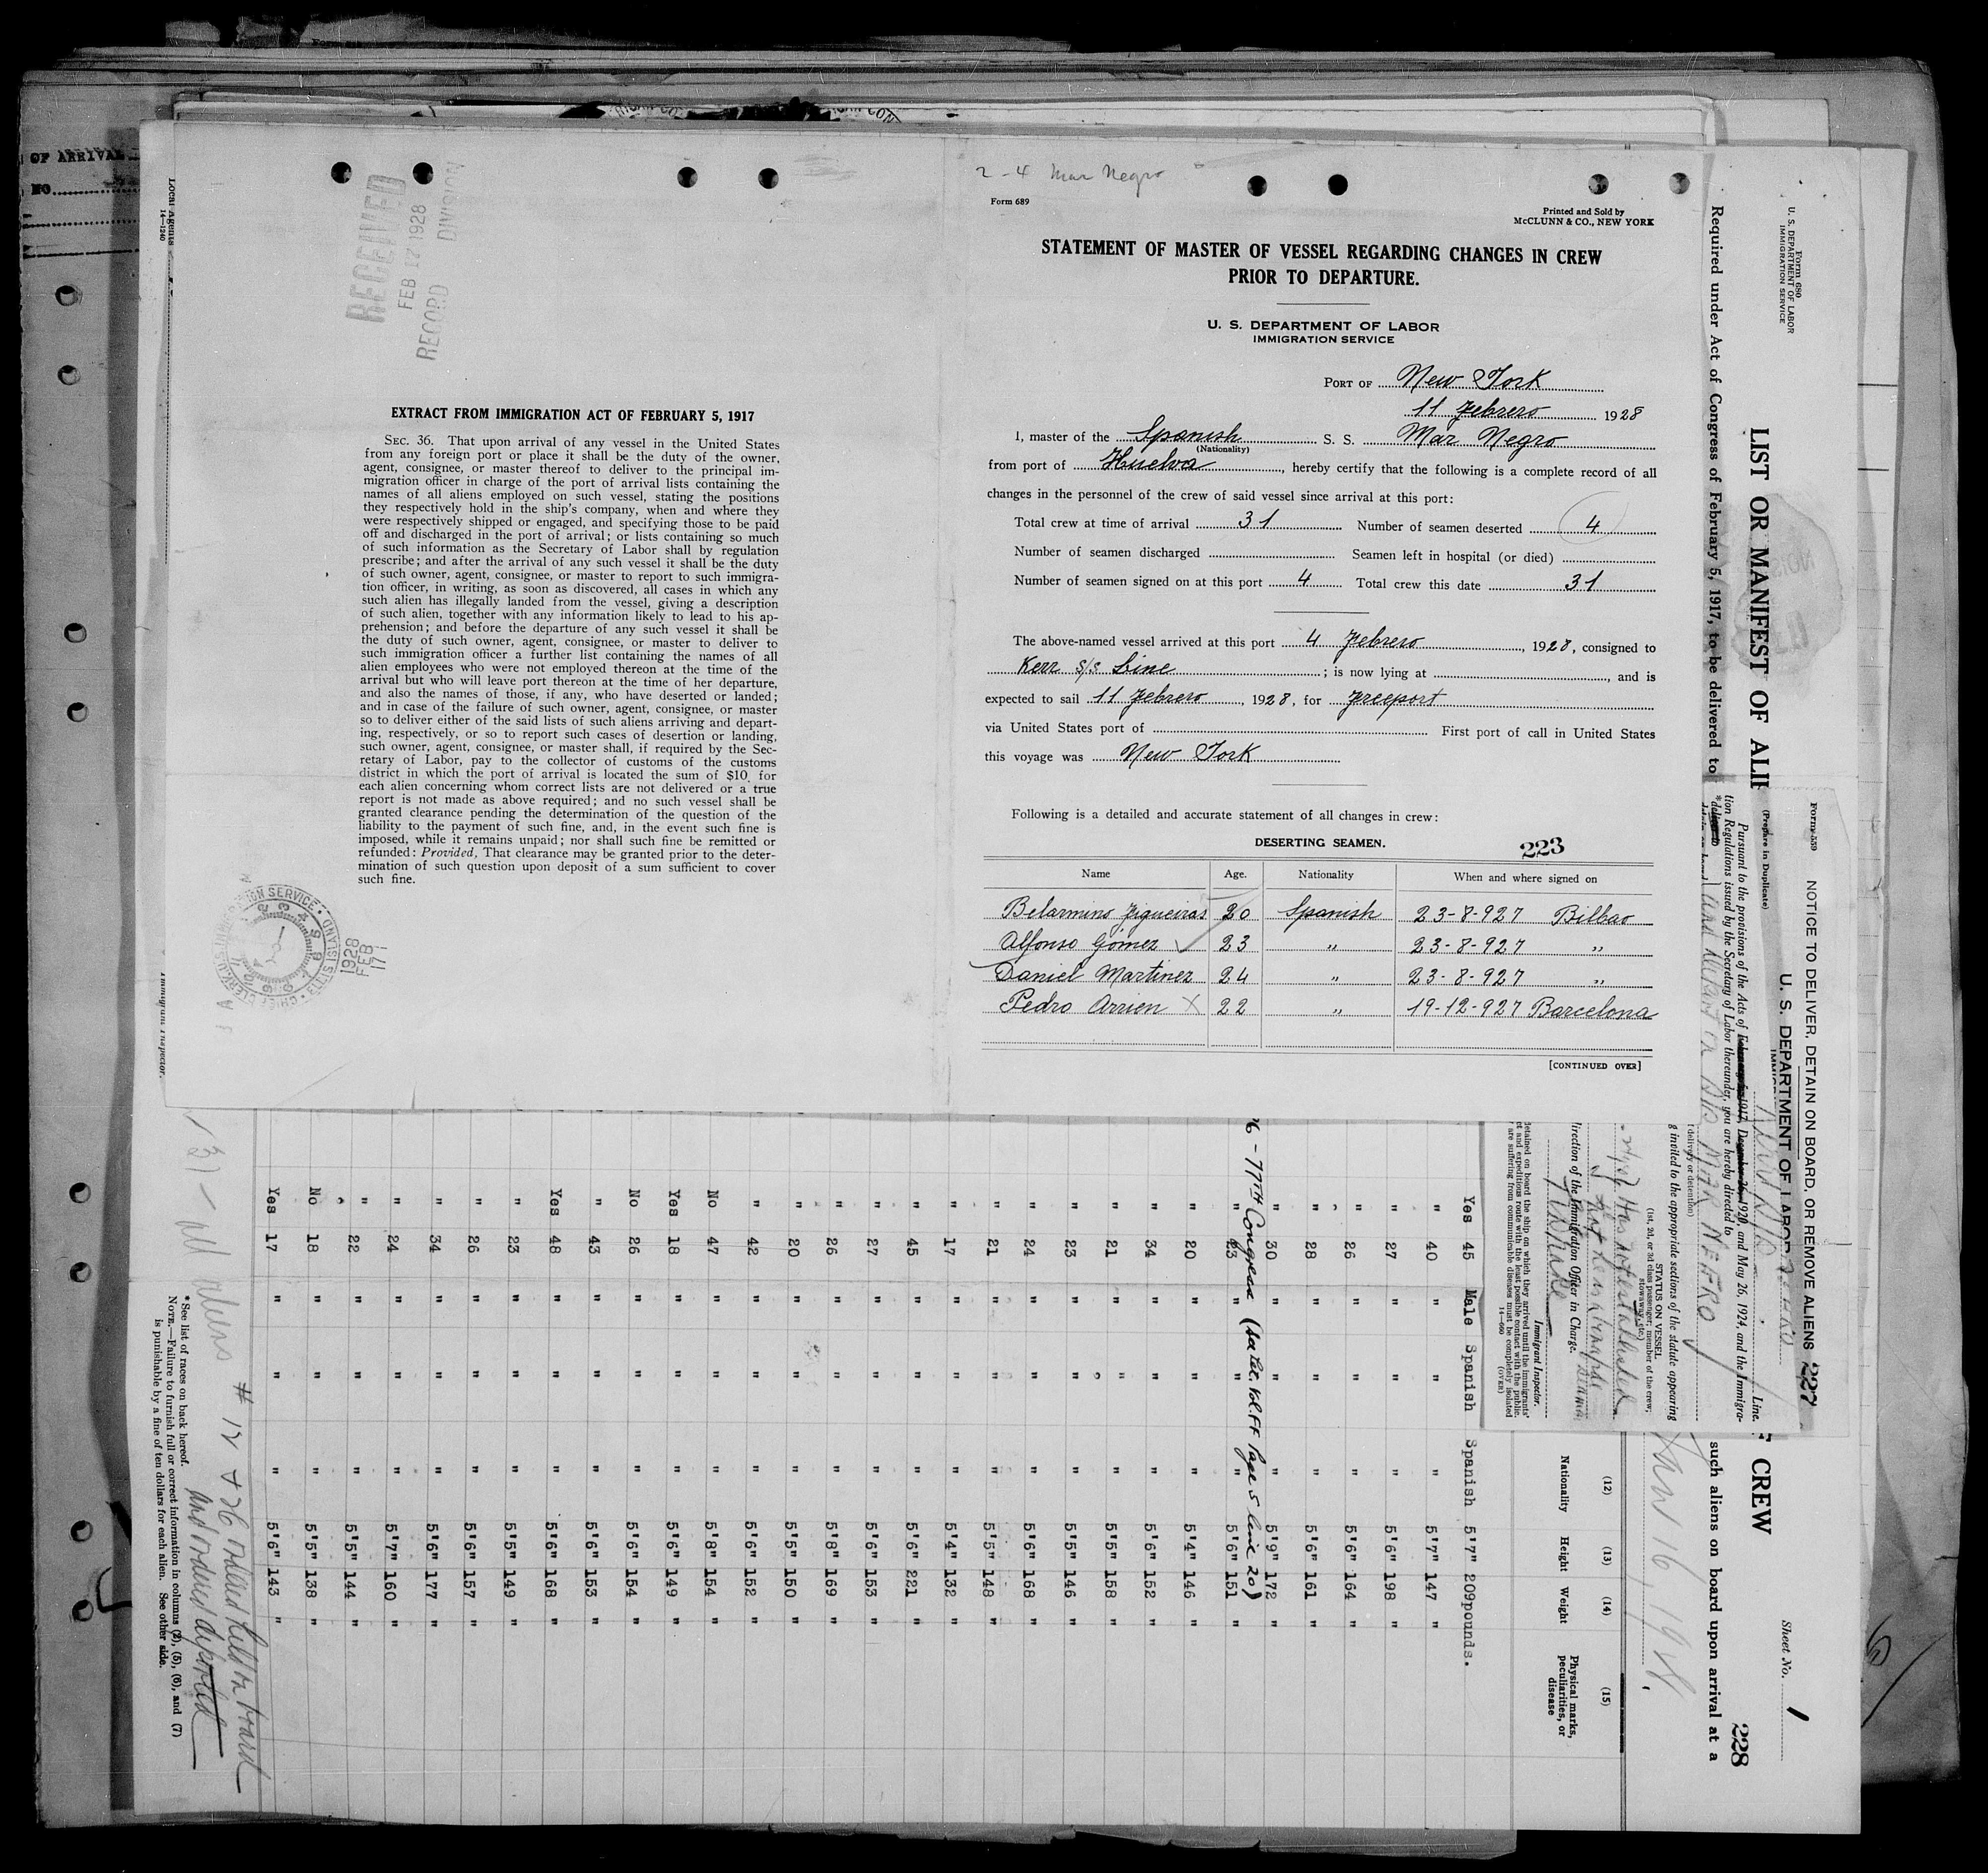 OF ARRIVAL
NO.
RICAN CON
Local Agents
14—1240
RECEIVED
FEB 17 1928
RECORD DIVISION
EXTRACT FROM IMMIGRATION ACT OF FEBRUARY 5, 1917
SEC. 36. That upon arrival of any vessel in the United States
from any foreign port or place it shall be the duty of the owner,
agent, consignee, or master thereof to deliver to the principal im-
migration officer in charge of the port of arrival lists containing the
names of all aliens employed on such vessel, stating the positions
they respectively hold in the ship's company, when and where they
were respectively shipped or engaged, and specifying those to be paid
off and discharged in the port of arrival; or lists containing so much
of such information as the Secretary of Labor shall by regulation
prescribe; and after the arrival of any such vessel it shall be the duty
of such owner, agent, consignee, or master to report to such immigra-
tion officer, in writing, as soon as discovered, all cases in which any
such alien has illegally landed from the vessel, giving a description
of such alien, together with any information likely to lead to his ap-
prehension; and before the departure of any such vessel it shall be
the duty of such owner, agent, consignee, or master to deliver to
such immigration officer a further list containing the names of all
alien employees who were not employed thereon at the time of the
arrival but who will leave port thereon at the time of her departure,
and also the names of those, if any, who have deserted or landed;
and in case of the failure of such owner, agent, consignee, or master
so to deliver either of the said lists of such aliens arriving and depart-
ing, respectively, or so to report such cases of desertion or landing,
such owner, agent, consignee, or master shall, if required by the Sec-
retary of Labor, pay to the collector of customs of the customs
district in which the port of arrival is located the sum of $10 for
each alien concerning whom correct lists are not delivered or a true
report is not made as above required; and no such vessel shall be
granted clearance pending the determination of the question of the
liability to the payment of such fine, and, in the event such fine is
imposed, while it remains unpaid; nor shall such fine be remitted or
refunded: Provided, That clearance may be granted prior to the deter-
mination of such question upon deposit of a sum sufficient to cover
such fine.
1928
FEB
17
Immigrant Inspector.
2-4 Mar Negro
Form 689
Printed and Sold by
McCLUNN & CO., NEW YORK
STATEMENT OF MASTER OF VESSEL REGARDING CHANGES IN CREW
PRIOR TO DEPARTURE.
U. S. DEPARTMENT OF LABOR
IMMIGRATION SERVICE
PORT OF New York
11 Febrero 1928
I, master of the Spanish S. S. Mar Negro
(Nationality)
from port of Huelva, hereby certify that the following is a complete record of all
changes in the personnel of the crew of said vessel since arrival at this port:
Total crew at time of arrival 31 Number of seamen deserted 4
Number of seamen discharged Seamen left in hospital (or died)
Number of seamen signed on at this port 4 Total crew this date 31
The above-named vessel arrived at this port 4 Febrero, 1928, consigned to
Kerr s/s Line; is now lying at , and is
expected to sail 11 Febrero, 1928, for Freeport
via United States port of First port of call in United States
this voyage was New York
Following is a detailed and accurate statement of all changes in crew:
DESERTING SEAMEN. 223
Name Age. Nationality When and where signed on
Belarmino Figueiras 20 Spanish 23-8-927 Bilbao
Alfonso Gómez 23 " 23-8-927 "
Daniel Martinez 24 " 23-8-927 "
Pedro Arrien X 22 " 19-12-927 Barcelona
[CONTINUED OVER]
Form 680
U. S. DEPARTMENT OF LABOR
IMMIGRATION SERVICE
Sheet No. 1
228
LIST OR MANIFEST OF ALIE
F CREW
Required under Act of Congress of February 5, 1917, to be delivered to
such aliens on board upon arrival at a
Form 559
NOTICE TO DELIVER, DETAIN ON BOARD, OR REMOVE ALIENS 227
U. S. DEPARTMENT OF LABOR
(Prepare in Duplicate)
Line.
Pursuant to the provisions of the Acts of February 5, 1917, December 26, 1920, and May 26, 1924, and the Immigra-
tion Regulations issued by the Secretary of Labor thereunder, you are hereby directed to
MAR NEGRO
g invited to the appropriate sections of the statute appearing
STATUS ON VESSEL
(1st, 2d, or 3d class passenger; member of the crew;
stowaway, etc.)
Has not established
irection of the Immigration Officer in Charge.
Immigrant Inspector.
detained on board the ship on which they arrived until the immigrants'
ct and expeditious route with the least possible contact with the public.
are suffering from communicable diseases must be completely isolated
14—660
(OVER)
16, 1928.
(12) (13) (14) (15)
Nationality Height Weight Physical marks, peculiarities, or disease
Yes 45 Male Spanish Spanish 5'7" 209 pounds.
" 40 " " " 5'7" 147 "
" 27 " " " 5'6" 198 "
" 26 " " " 5'6" 164 "
" 28 " " " 5'6" 161 "
" 30 " " " 5'9" 172 "
6 - 77th Congress (See Rec. Vol. FF Page 5 line 20)
" 43 " " " 5'6" 151 "
" 20 " " " 5'4" 146 "
" 34 " " " 5'6" 152 "
" 21 " " " 5'5" 158 "
" 23 " " " 5'5" 146 "
" 24 " " " 5'6" 168 "
" 21 " " " 5'5" 148 "
" 17 " " " 5'4" 132 "
" 45 " " " 5'6" 221 "
" 27 " " " 5'6" 153 "
" 26 " " " 5'8" 169 "
" 20 " " " 5'5" 150 "
" 42 " " " 5'6" 152 "
No 47 " " " 5'8" 154 "
Yes 18 " " " 5'6" 149 "
No 26 " " " 5'6" 154 "
" 43 " " " 5'6" 153 "
Yes 48 " " " 5'6" 168 "
" 23 " " " 5'5" 149 "
" 26 " " " 5'6" 157 "
" 34 " " " 5'6" 177 "
" 24 " " " 5'7" 160 "
" 22 " " " 5'5" 144 "
No 18 " " " 5'5" 138 "
Yes 17 " " " 5'6" 143 "
31 - all aliens # 12 + 26 ordered held on board
and ordered deported
*See list of races on back hereof.
NOTE.—Failure to furnish full or correct information in columns (2), (5), (6), and (7)
is punishable by a fine of ten dollars for each alien. See other side.